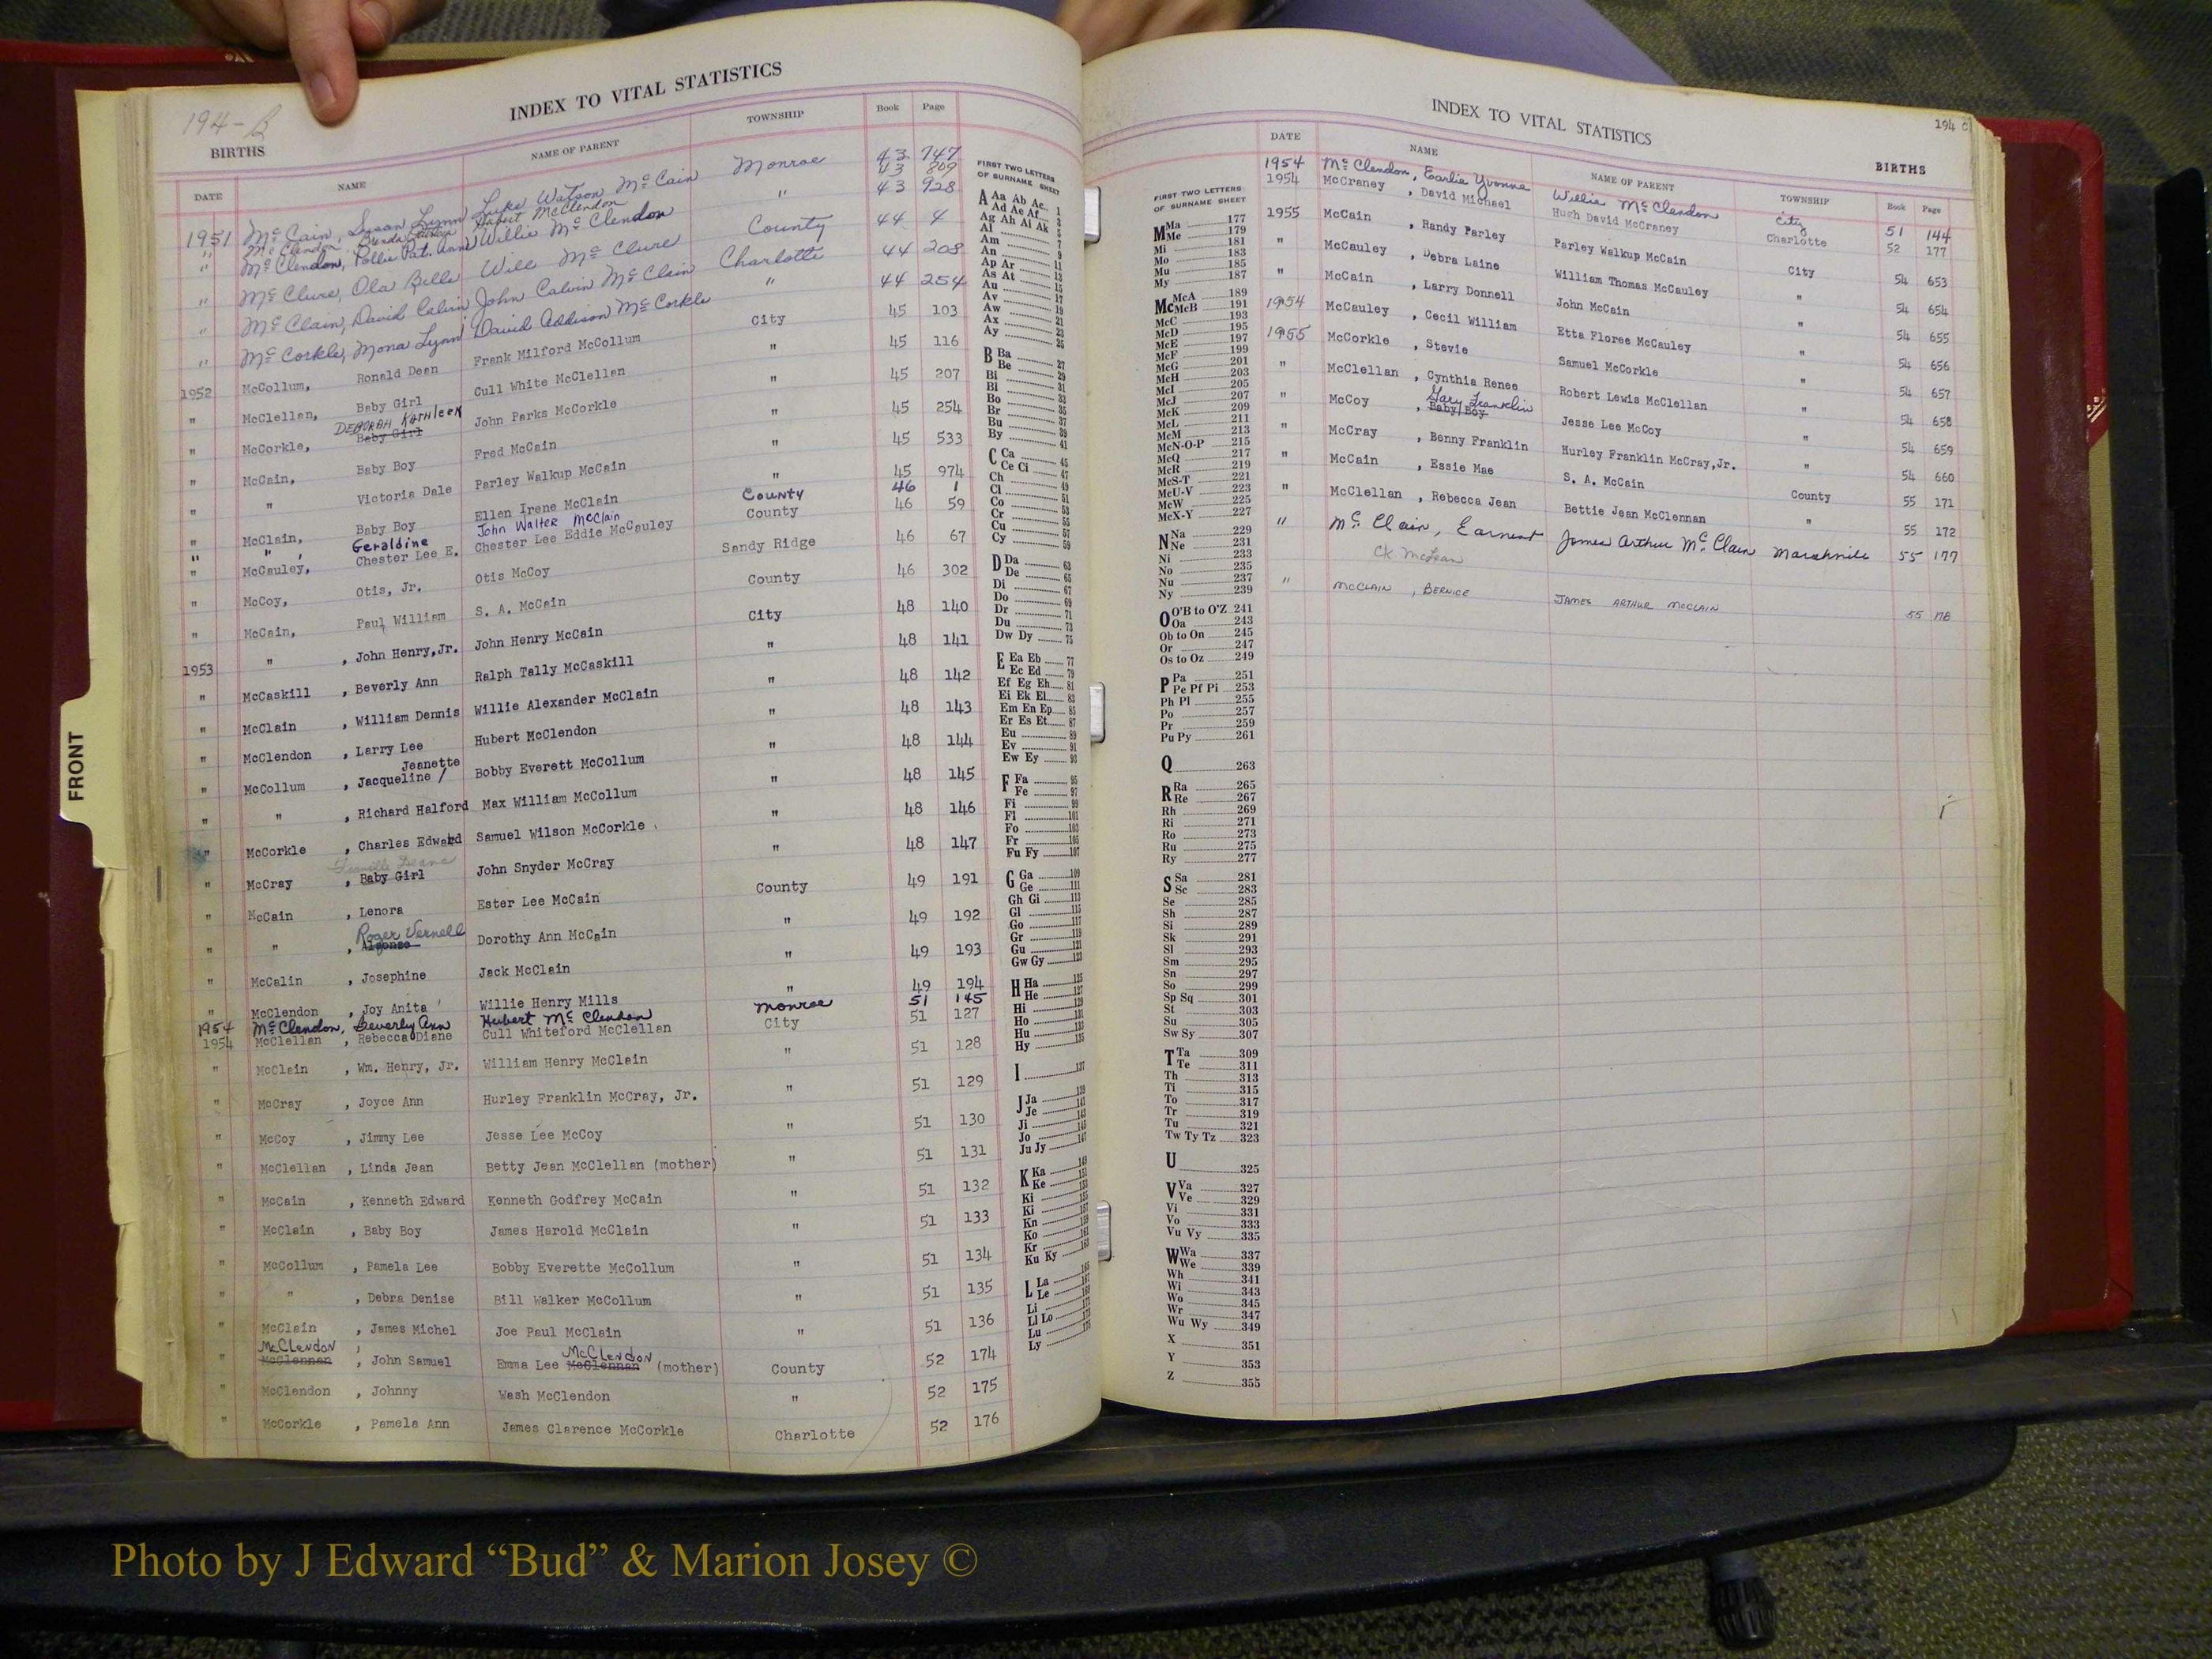 194-B
INDEX TO VITAL STATISTICS
BIRTHS
DATE NAME NAME OF PARENT TOWNSHIP Book Page
1951 McCain, Susan Lynn Luke Watson McCain Monroe 43 747
" McClendon, Hubert McClendon 43 809
" McClendon, Pollie Pat. Ann Willie McClendon " 43 928
" McClure, Ola Belle Will McClure County 44 4
" McClain, David Calvin John Calvin McClain Charlotte 44 208
" McCorkle, Mona Lynn David Addison McCorkle " 44 254
1952 McCollum, Ronald Dean Frank Milford McCollum City 45 103
" McClellan, Baby Girl Cull White McClellan " 45 116
" McCorkle, DEBORAH KATHLEEN Baby Girl John Parks McCorkle " 45 207
" McCain, Baby Boy Fred McCain " 45 254
" " Victoria Dale Parley Walkup McCain " 45 533
" McClain, Baby Boy Ellen Irene McClain " 45 974
" " , Geraldine John Walter McClain County 46 1
" McCauley, Chester Lee E. Chester Lee Eddie McCauley County 46 59
" McCoy, Otis, Jr. Otis McCoy Sandy Ridge 46 67
" McCain, Paul William S. A. McCain County 46 302
1953 " , John Henry,Jr. John Henry McCain City 48 140
" McCaskill , Beverly Ann Ralph Tally McCaskill " 48 141
" McClain , William Dennis Willie Alexander McClain " 48 142
" McClendon , Larry Lee Hubert McClendon " 48 143
" McCollum , Jacqueline / Jeanette Bobby Everett McCollum " 48 144
" " , Richard Halford Max William McCollum " 48 145
" McCorkle , Charles Edward Samuel Wilson McCorkle " 48 146
" McCray , Baby Girl John Snyder McCray " 48 147
" McCain , Lenora Ester Lee McCain County 49 191
" " , Roger Vernell Alfonso Dorothy Ann McCain " 49 192
" McCalin , Josephine Jack McClain " 49 193
" McClendon , Joy Anita Willie Henry Mills " 49 194
1954 McClendon, Beverly Ann Hubert McClendon Monroe 51 145
1954 McClellan , Rebecca Diane Cull Whiteford McClellan City 51 127
" McClain , Wm. Henry, Jr. William Henry McClain " 51 128
" McCray , Joyce Ann Hurley Franklin McCray, Jr. " 51 129
" McCoy , Jimmy Lee Jesse Lee McCoy " 51 130
" McClellan , Linda Jean Betty Jean McClellan (mother) " 51 131
" McCain , Kenneth Edward Kenneth Godfrey McCain " 51 132
" McClain , Baby Boy James Harold McClain " 51 133
" McCollum , Pamela Lee Bobby Everette McCollum " 51 134
" " , Debra Denise Bill Walker McCollum " 51 135
" McClain , James Michel Joe Paul McClain " 51 136
" McClendon McClennan , John Samuel Emma Lee McClendon McClennan (mother) County 52 174
" McClendon , Johnny Wash McClendon " 52 175
" McCorkle , Pamela Ann James Clarence McCorkle Charlotte 52 176
FIRST TWO LETTERS
OF SURNAME SHEET
A Aa Ab Ac 1
Ad Ae Af 3
Ag Ah Ai Ak 5
Al 7
Am 9
An 11
Ap Ar 13
As At 15
Au 17
Av 19
Aw 21
Ax 23
Ay 25
B Ba 27
Be 29
Bi 31
Bl 33
Bo 35
Br 37
Bu 39
By 41
C Ca 45
Ce Ci 47
Ch 49
Cl 51
Co 53
Cr 55
Cu 57
Cy 59
D Da 63
De 65
Di 67
Do 69
Dr 71
Du 73
Dw Dy 75
E Ea Eb 77
Ec Ed 79
Ef Eg Eh 81
Ei Ek El 83
Em En Ep 85
Er Es Et 87
Eu 89
Ev 91
Ew Ey 93
F Fa 95
Fe 97
Fi 99
Fl 101
Fo 103
Fr 105
Fu Fy 107
G Ga 109
Ge 111
Gh Gi 113
Gl 115
Go 117
Gr 119
Gu 121
Gw Gy 123
H Ha 125
He 127
Hi 129
Ho 131
Hu 133
Hy 135
I 137
J Ja 139
Je 141
Ji 143
Jo 145
Ju Jy 147
K Ka 149
Ke
Ki
Ki
Kn
Ko
Kr
Ku Ky
L La
Le
Li
Ll Lo
Lu
Ly
FRONT
INDEX TO VITAL STATISTICS
194 C
BIRTHS
DATE NAME NAME OF PARENT TOWNSHIP Book Page
1954 McClendon, Earlie Yvonne Willie McClendon City 51 144
1954 McCraney , David Michael Hugh David McCraney Charlotte 52 177
1955 McCain , Randy Parley Parley Walkup McCain City 54 653
" McCauley , Debra Laine William Thomas McCauley " 54 654
" McCain , Larry Donnell John McCain " 54 655
1954 McCauley , Cecil William Etta Floree McCauley " 54 656
1955 McCorkle , Stevie Samuel McCorkle " 54 657
" McClellan , Cynthia Renee Robert Lewis McClellan " 54 658
" McCoy , Gary Franklin Baby Boy Jesse Lee McCoy " 54 659
" McCray , Benny Franklin Hurley Franklin McCray,Jr. " 54 660
" McCain , Essie Mae S. A. McCain County 55 171
" McClellan , Rebecca Jean Bettie Jean McClennan " 55 172
" McClain, Earnest James Arthur McClain Marshville 55 177
Ck McLean
" McCLAIN , BERNICE JAMES ARTHUR McCLAIN 55 178
FIRST TWO LETTERS
OF SURNAME SHEET
M Ma 177
Me 179
Mi 181
Mo 183
Mu 185
My 187
Mc McA 189
McB 191
McC 193
McD 195
McE 197
McF 199
McG 201
McH 203
McI 205
McJ 207
McK 209
McL 211
McM 213
McN-O-P 215
McQ 217
McR 219
McS-T 221
McU-V 223
McW 225
McX-Y 227
N Na 229
Ne 231
Ni 233
No 235
Nu 237
Ny 239
O O'B to O'Z 241
Oa 243
Ob to On 245
Or 247
Os to Oz 249
P Pa 251
Pe Pf Pi 253
Ph Pl 255
Po 257
Pr 259
Pu Py 261
Q 263
R Ra 265
Re 267
Rh 269
Ri 271
Ro 273
Ru 275
Ry 277
S Sa 281
Sc 283
Se 285
Sh 287
Si 289
Sk 291
Sl 293
Sm 295
Sn 297
So 299
Sp Sq 301
St 303
Su 305
Sw Sy 307
T Ta 309
Te 311
Th 313
Ti 315
To 317
Tr 319
Tu 321
Tw Ty Tz 323
U 325
V Va 327
Ve 329
Vi 331
Vo 333
Vu Vy 335
W Wa 337
We 339
Wh 341
Wi 343
Wo 345
Wr 347
Wu Wy 349
X 351
Y 353
Z 355
Photo by J Edward “Bud” & Marion Josey ©